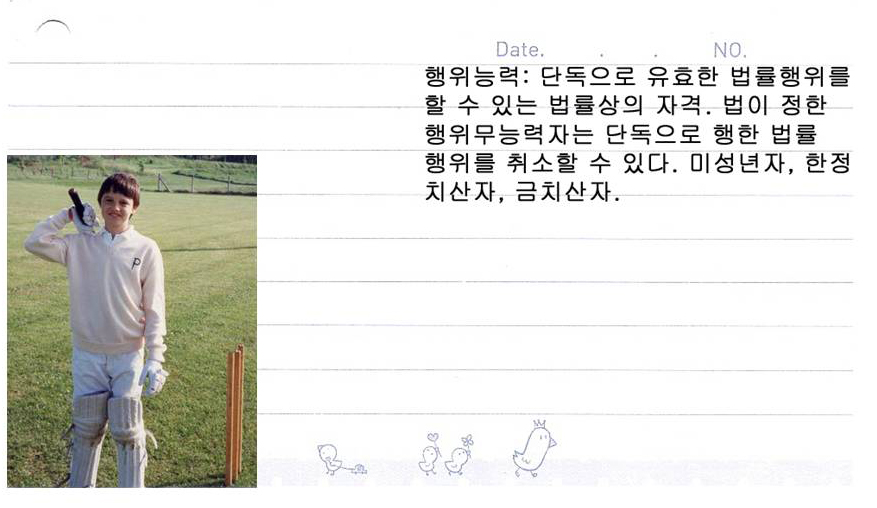 Date. . . NO.
행위능력: 단독으로 유효한 법률행위를
할 수 있는 법률상의 자격. 법이 정한
행위무능력자는 단독으로 행한 법률
행위를 취소할 수 있다. 미성년자, 한정
치산자, 금치산자.
P